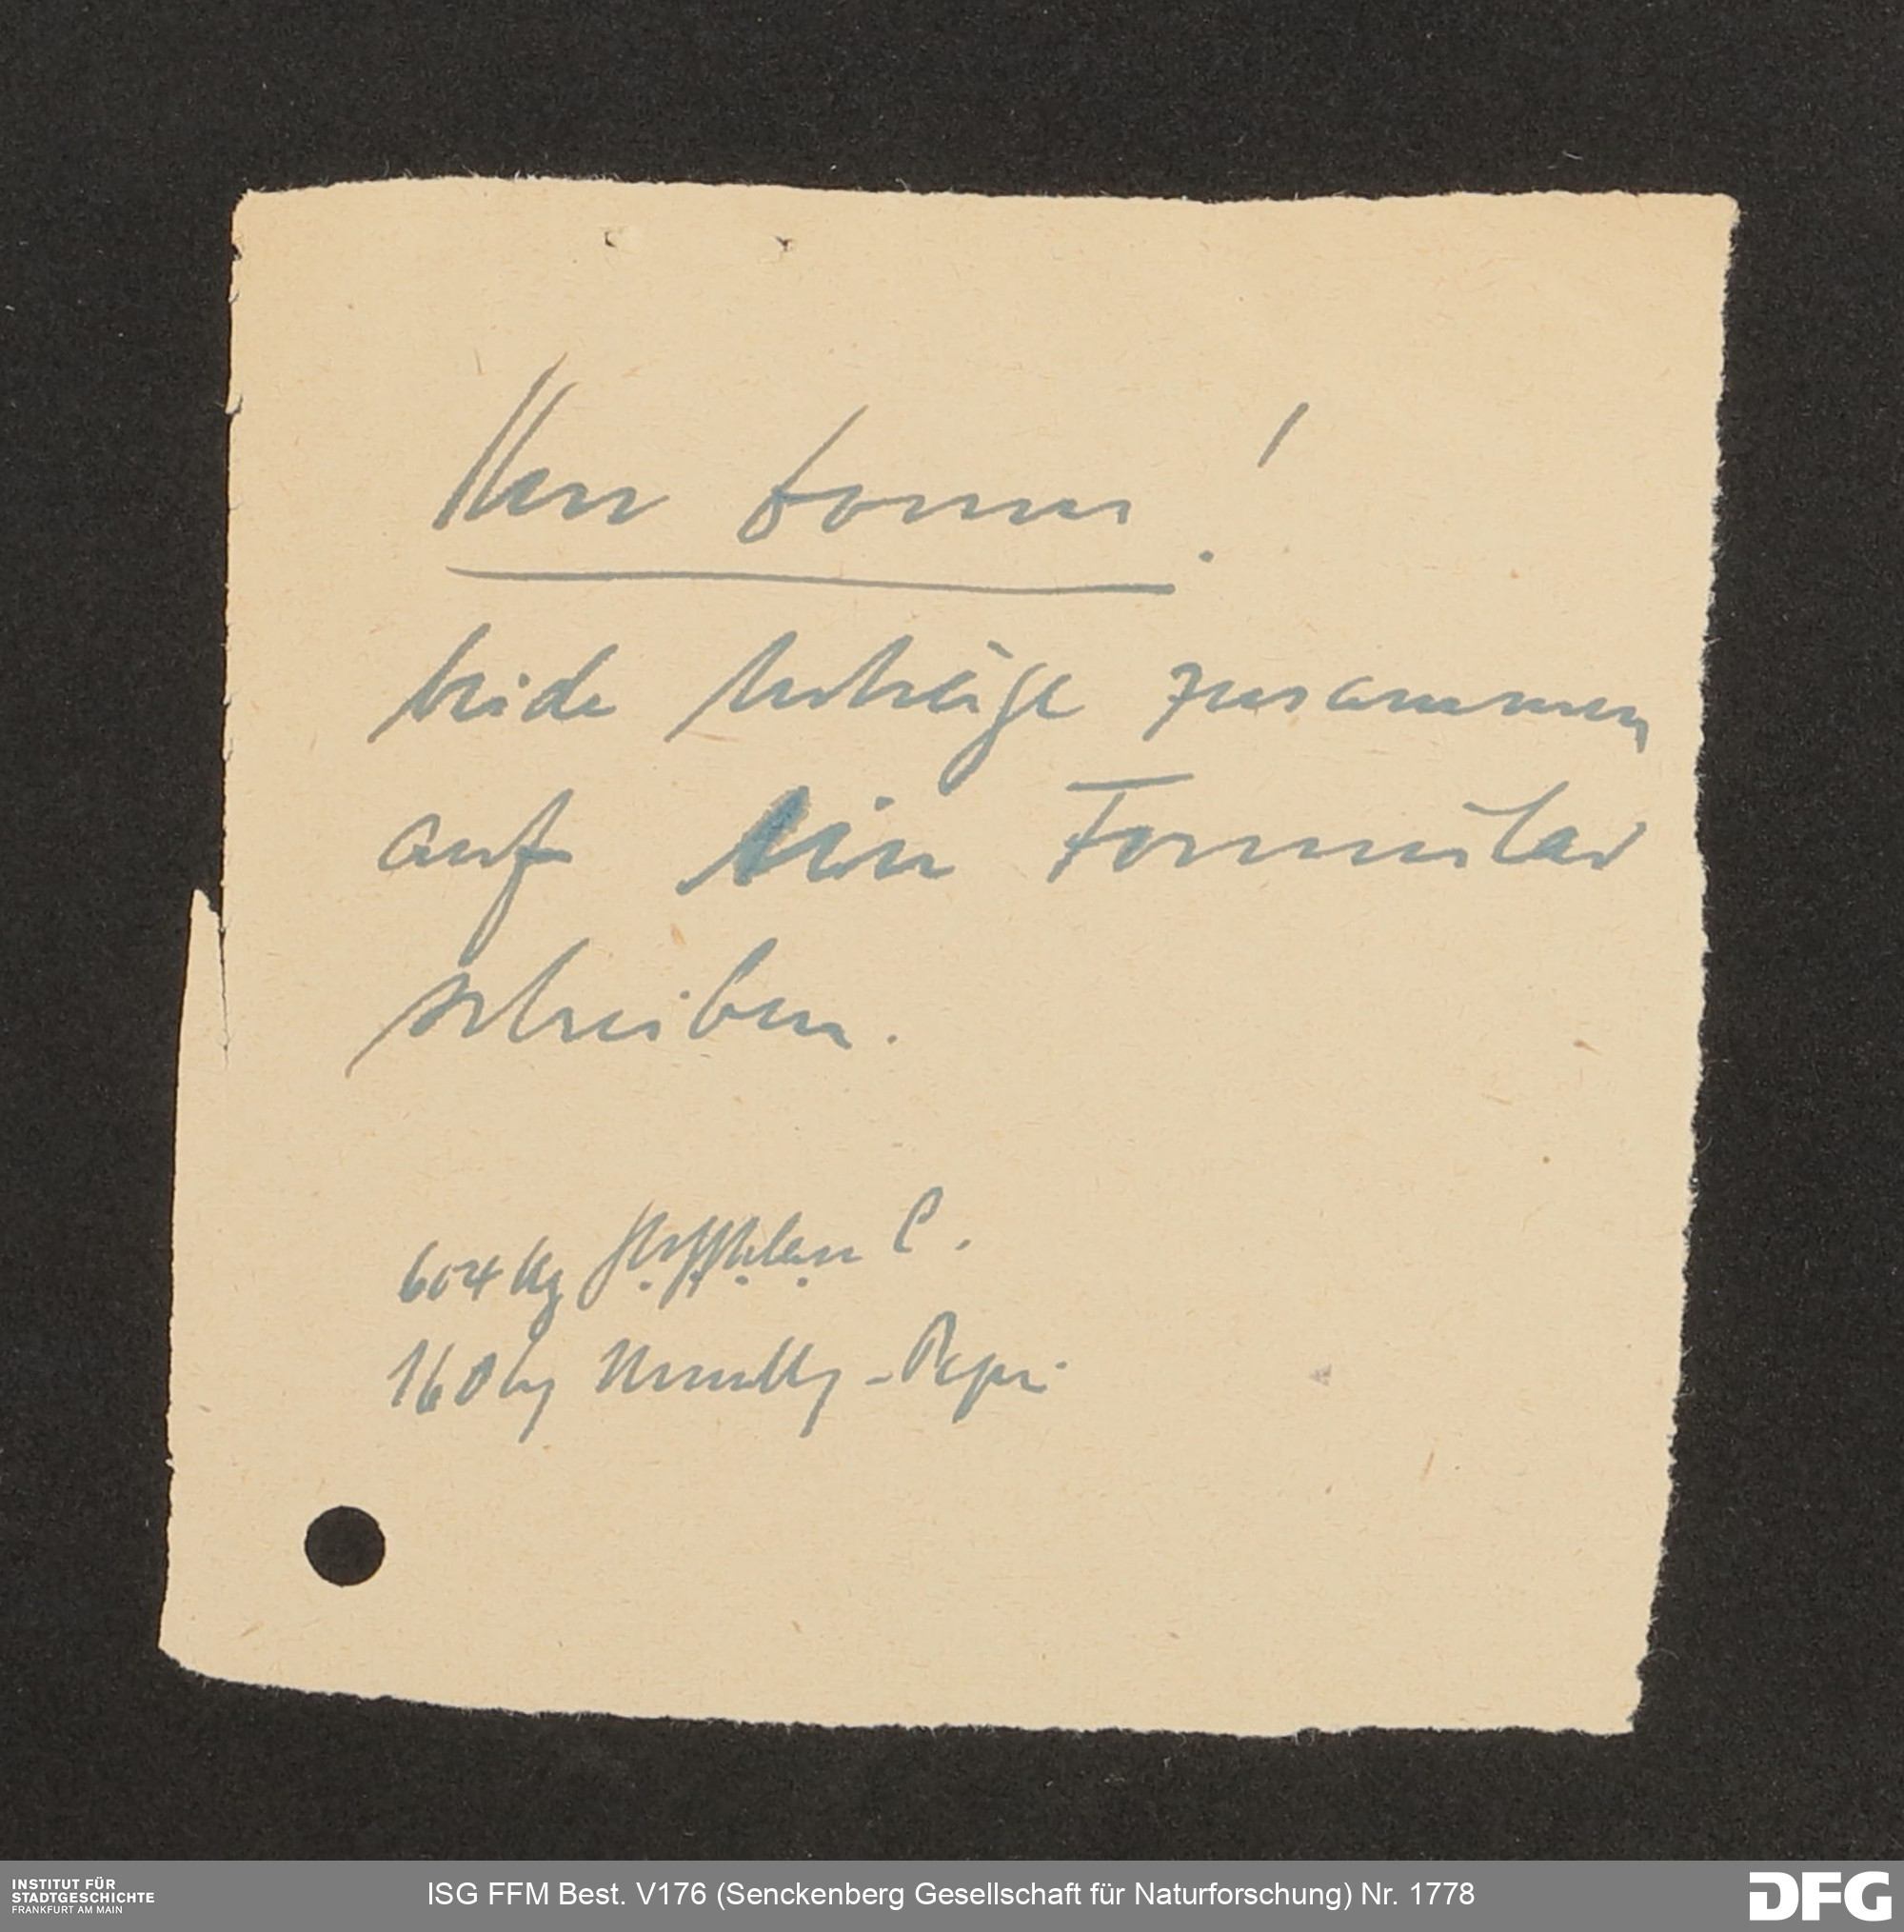 Herr
!
beide Anträge zusammen
auf ein Formular
schreiben.
604 kg C.
160 kg - Papier
INSTITUT FÜR
STADTGESCHICHTE
FRANKFURT AM MAIN
ISG FFM Best. V176 (Senckenberg Gesellschaft für Naturforschung) Nr. 1778
DFG